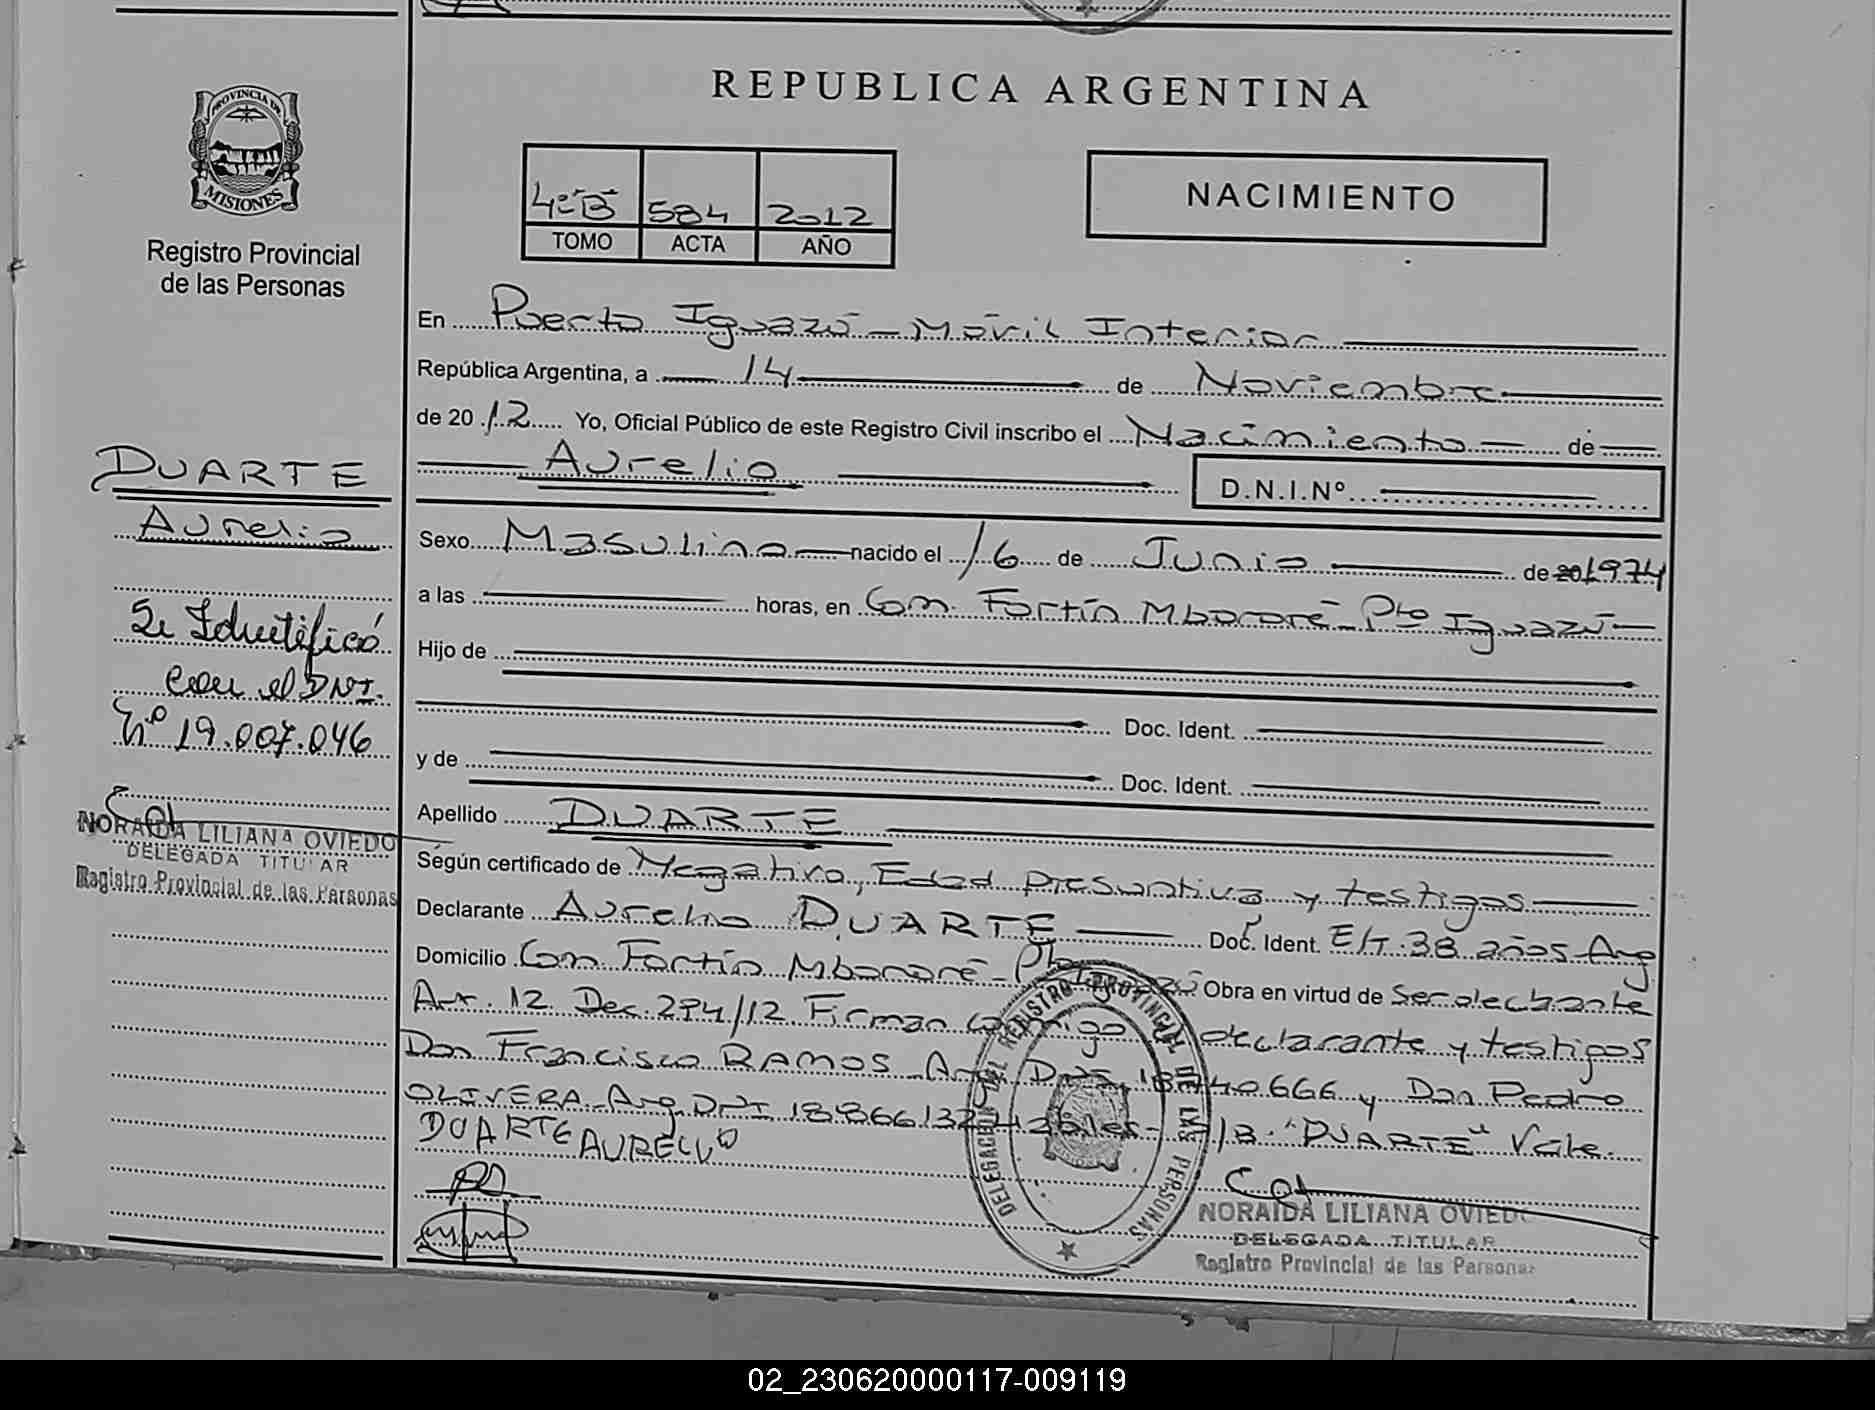 REPUBLICA ARGENTINA
PROVINCIA DE
MISIONES
Registro Provincial
de las Personas
4º B 584 2012
TOMO ACTA AÑO
NACIMIENTO
En Puerto Iguazú - Móvil Interior
República Argentina, a 14 de Noviembre
de 2012 Yo, Oficial Público de este Registro Civil inscribo el Nacimiento de
Aurelio D.N.I.Nº
Sexo Masculino nacido el 16 de Junio de 20 1974
a las horas, en Com. Fortín Mbororé - Pto Iguazú
Hijo de
Doc. Ident.
y de Doc. Ident.
Apellido DUARTE
Según certificado de Negativo, Edad presuntiva y testigos
Declarante Aurelio DUARTE Doc. Ident. E/T. 38 años Arg
Domicilio Com Fortín Mbororé - Pto Obra en virtud de Ser declarante
Art. 12 Dec. 294/12 Firman conmigo declarante y testigos
Don Francisco RAMOS Arg. D.N.I. 666 y Don Pedro
OLIVERA Arg. DNI "DUARTE" Vale.
DUARTE AURELIO
DELEGACION DEL REGISTRO PROVINCIAL DE LAS PERSONAS
NORAIDA LILIANA OVIEDO
DELEGADA TITULAR
Registro Provincial de las Personas
DUARTE
Aurelio
Se Identificó
con el DNI.
Nº 19.007.046
NORAIDA LILIANA OVIEDO
DELEGADA TITULAR
Registro Provincial de las Personas
02_230620000117-009119